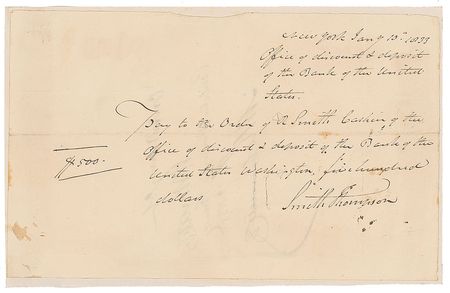 New York Jany 10th 1833
Office of discount & deposit
of the Bank of the United
States.
Pay to the Order of R Smith Cashier of the
Office of discount & deposit of the Bank of the
$500.
United States Washington, five hundred
dollars
Smith Thompson